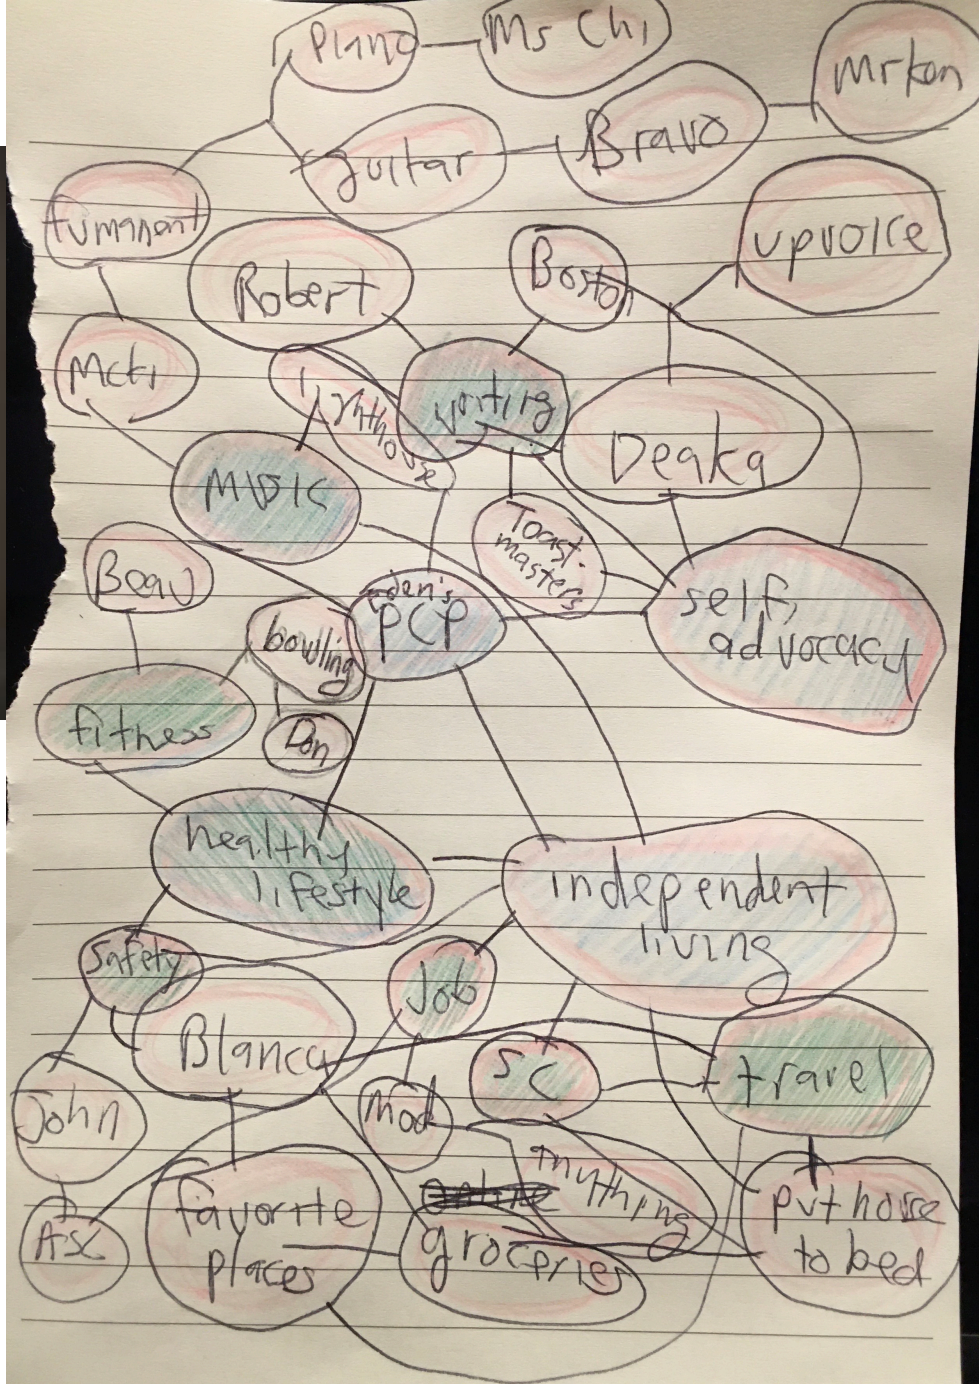 Piano
Ms Chi
Mr Ken
guitar
Bravo
upvoice
Robert
Boston
Mcki
lighthouse
writing
Deaka
Music
Toast-
masters
Beau
Eden's
PCP
self,
advocacy
bowling
fitness
Dan
healthy
lifestyle
independent
living
safety
Job
Blanca
SC
travel
John
Mod
Anything
favorite
places
put house
to bed
groceries